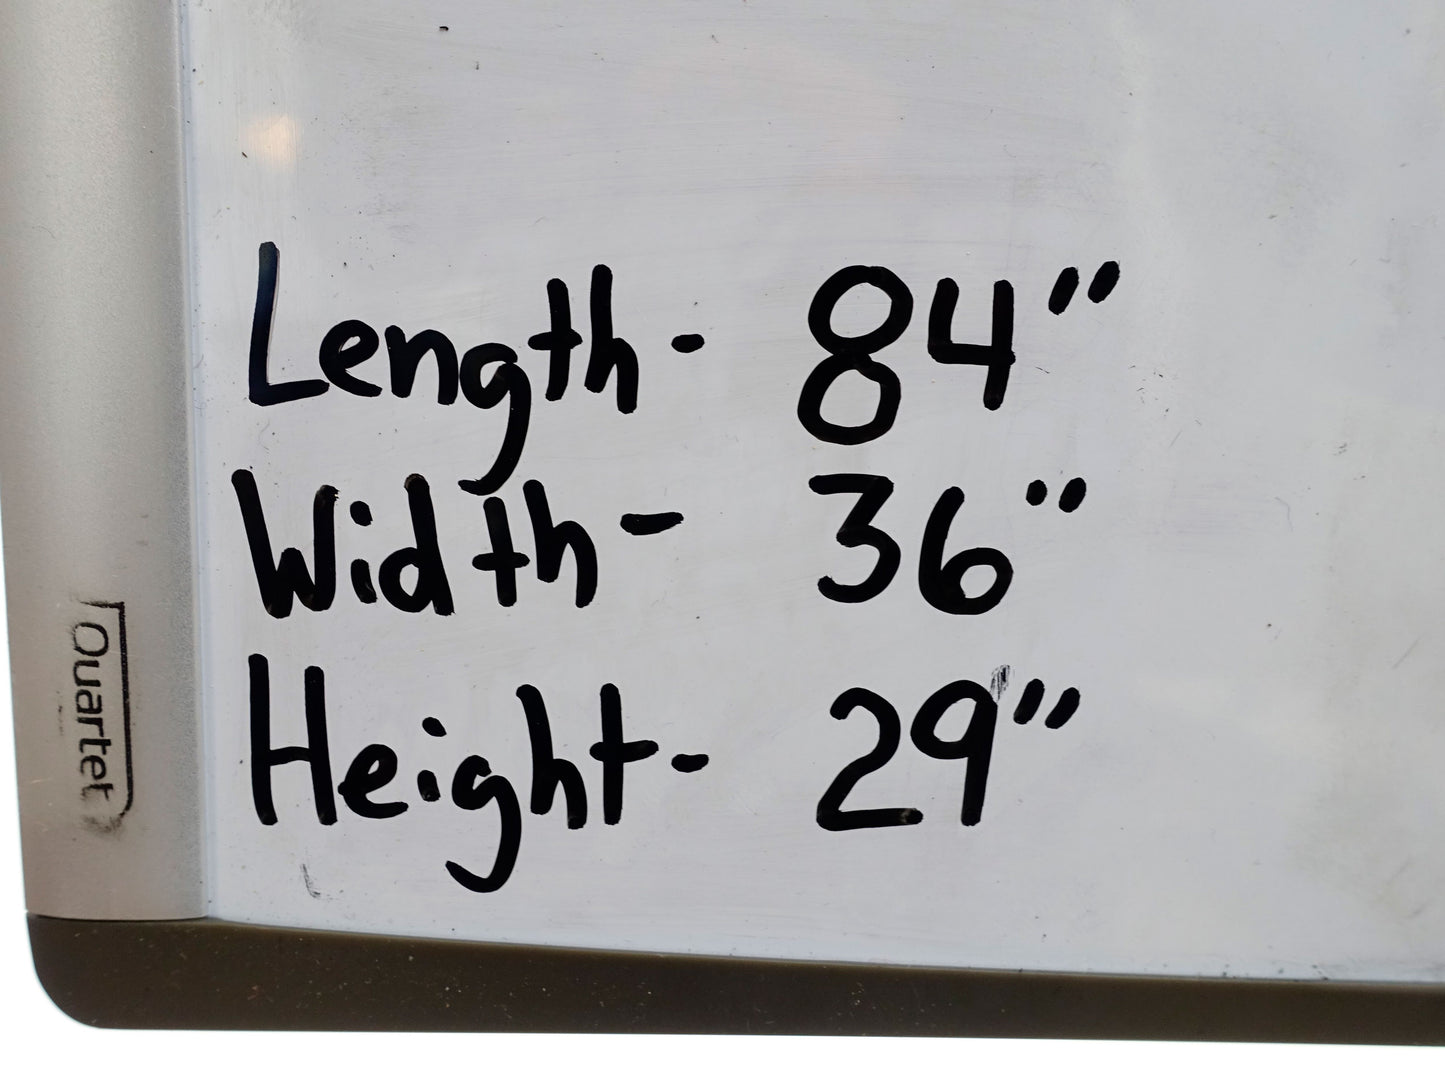 Length- 84"
Width- 36"
Height- 29"
Quartet